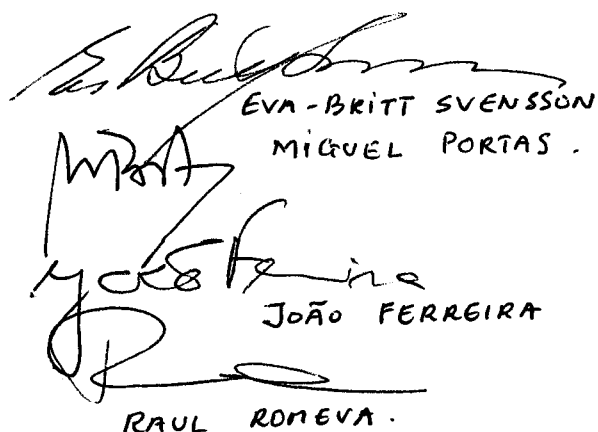 EVA-BRITT SVENSSON
MIGUEL PORTAS.
João Ferreira
JOÃO FERREIRA
RAUL ROMEVA.